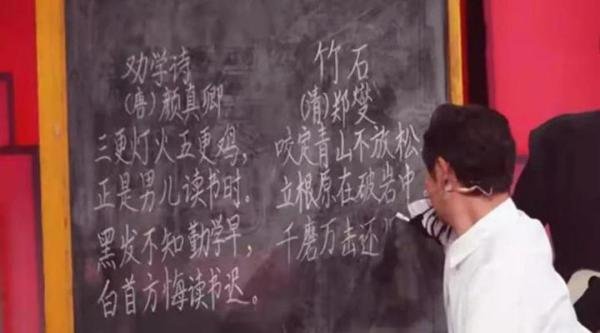 劝学诗
(唐)颜真卿
三更灯火五更鸡，
正是男儿读书时。
黑发不知勤学早，
白首方悔读书迟。
竹石
(清)郑燮
咬定青山不放松
立根原在破岩中
千磨万击还